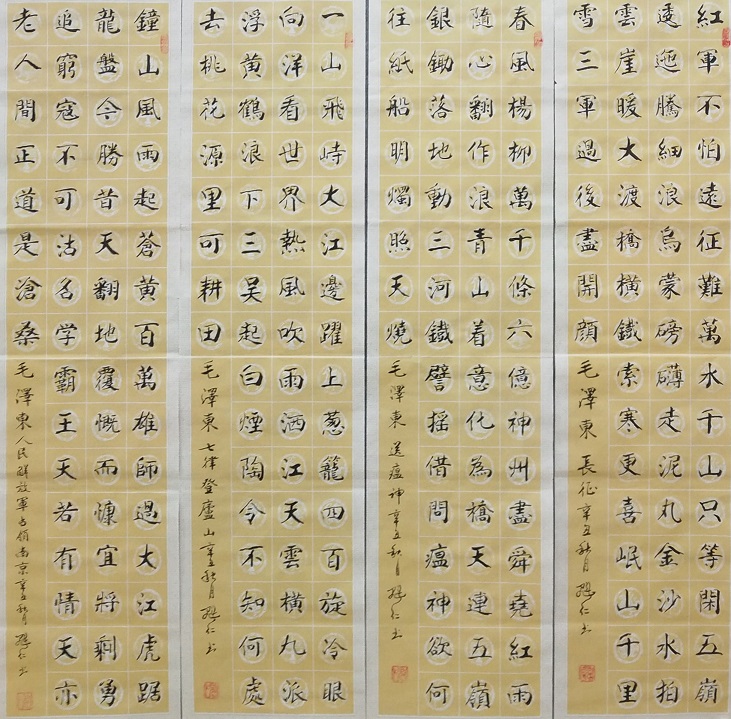 紅軍不怕遠征難萬水千山只等閑五嶺
逶迤騰細浪烏蒙磅礴走泥丸金沙水拍
雲崖暖大渡橋橫鐵索寒更喜岷山千里
雪三軍過後盡開顏
毛澤東長征辛丑秋月仁书
春風楊柳萬千條六億神州盡舜堯紅雨
隨心翻作浪青山着意化為橋天連五嶺
銀鋤落地動三河鐵譬搖借問瘟神欲何
往紙船明燭照天燒
毛澤東送瘟神辛丑秋月仁书
一山飛峙大江邊躍上葱籠四百旋冷眼
向洋看世界熱風吹雨洒江天雲橫九派
浮黃鶴浪下三吴起白煙陶令不知何處
去桃花源里可耕田
毛澤東七律登廬山辛丑秋月仁书
鐘山風雨起蒼黃百萬雄師過大江虎踞
龍盤今勝昔天翻地覆慨而慷宜將剩勇
追窮寇不可沽名学霸王天若有情天亦
老人間正道是滄桑
毛澤東人民解放軍占領南京辛丑秋月仁书